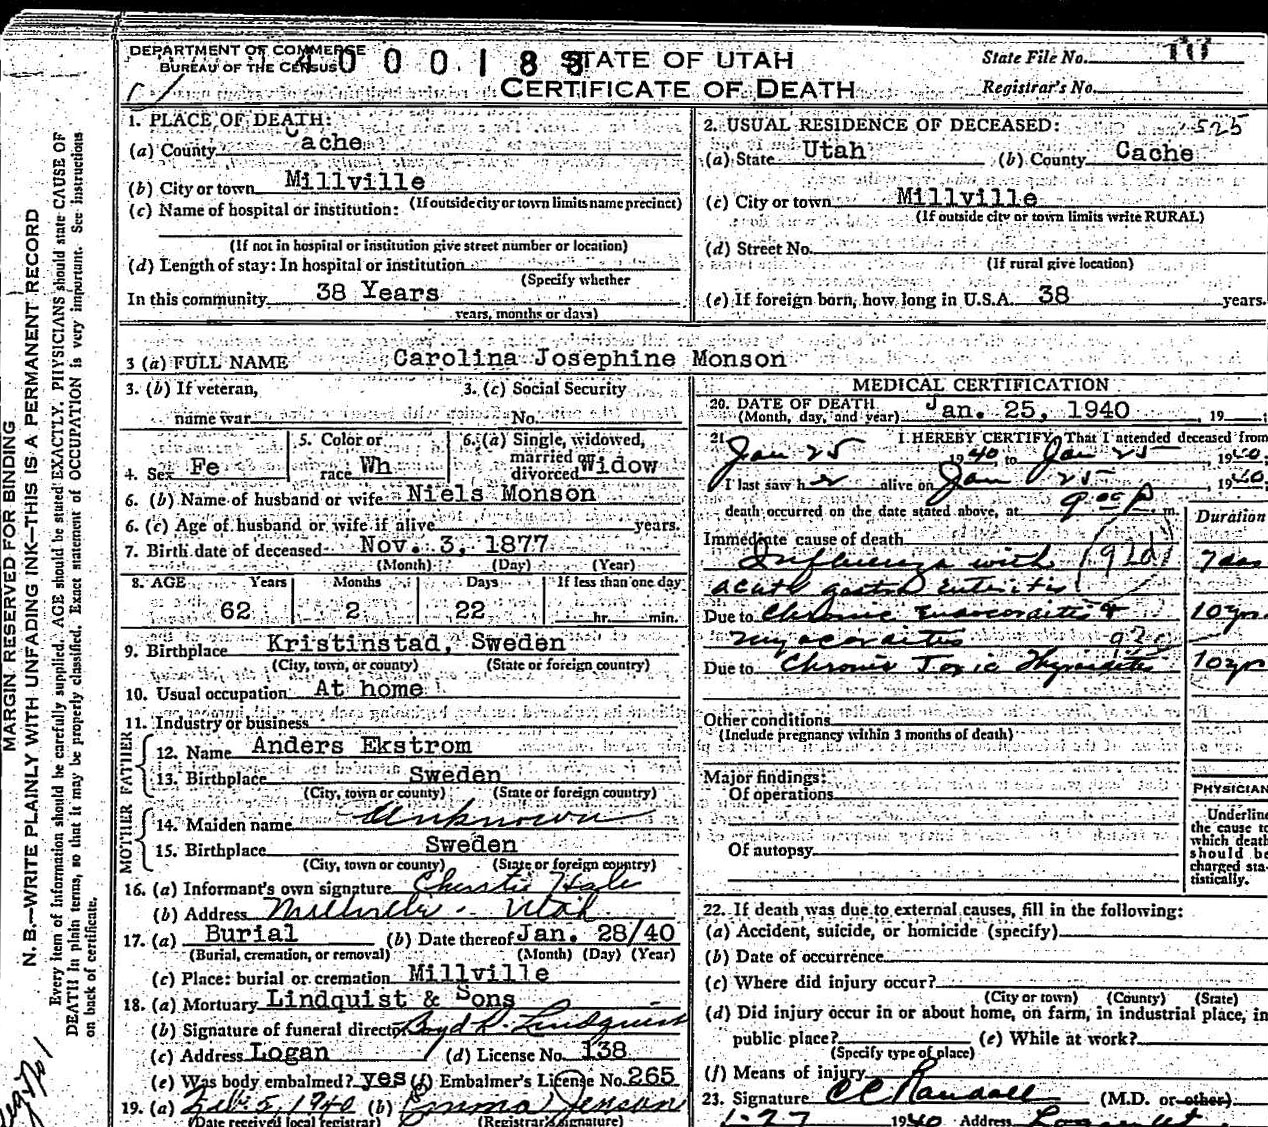 DEPARTMENT OF COMMERCE
BUREAU OF THE CENSUS
4000188
STATE OF UTAH
CERTIFICATE OF DEATH
State File No. 10
Registrar's No.
1. PLACE OF DEATH:
(a) County Cache
(b) City or town Millville
(If outside city or town limits name precinct)
(c) Name of hospital or institution:
(If not in hospital or institution give street number or location)
(d) Length of stay: In hospital or institution
(Specify whether
In this community 38 Years
years, months or days)
2. USUAL RESIDENCE OF DECEASED: 525
(a) State Utah (b) County Cache
(c) City or town Millville
(If outside city or town limits write RURAL)
(d) Street No.
(If rural give location)
(e) If foreign born, how long in U.S.A. 38 years.
3 (a) FULL NAME Carolina Josephine Monson
3. (b) If veteran, name war
3. (c) Social Security No.
4. Sex Fe
5. Color or race Wh
6. (a) Single, widowed, married or divorced Widow
6. (b) Name of husband or wife Niels Monson
6. (c) Age of husband or wife if alive years.
7. Birth date of deceased Nov. 3, 1877
(Month) (Day) (Year)
8. AGE Years Months Days If less than one day
62 2 22 hr. min.
9. Birthplace Kristinstad, Sweden
(City, town, or county) (State or foreign country)
10. Usual occupation At home
11. Industry or business
FATHER
12. Name Anders Ekstrom
13. Birthplace Sweden
(City, town or county) (State or foreign country)
MOTHER
14. Maiden name Unknown
15. Birthplace Sweden
(City, town or county) (State or foreign country)
16. (a) Informant's own signature Christie Hale
(b) Address Millville - Utah
17. (a) Burial (b) Date thereof Jan. 28/40
(Burial, cremation, or removal) (Month) (Day) (Year)
(c) Place: burial or cremation Millville
18. (a) Mortuary Lindquist & Sons
(b) Signature of funeral director Boyd R. Lindquist
(c) Address Logan (d) License No. 138
(e) Was body embalmed? yes (f) Embalmer's License No. 265
19. (a) Feb. 5, 1940 (b) Emma Jenson
(Date received local registrar) (Registrar's signature)
MEDICAL CERTIFICATION
20. DATE OF DEATH
(Month, day, and year) Jan. 25, 1940, 19
21. I HEREBY CERTIFY, That I attended deceased from
Jan 25 1940, to Jan 25 1940;
I last saw her alive on Jan 25, 1940;
death occurred on the date stated above, at 9:00 P. m.
Duration
Immediate cause of death
Influenza with
acute gastro enteritis 7 das
Due to Chronic Endocarditis & 10 yrs
myocarditis
Due to Chronic Toxic Thyroiditis 10 yrs
Other conditions
(Include pregnancy within 3 months of death)
Major findings:
Of operations
Of autopsy
PHYSICIAN
Underline
the cause to
which death
should be
charged sta-
tistically.
22. If death was due to external causes, fill in the following:
(a) Accident, suicide, or homicide (specify)
(b) Date of occurrence
(c) Where did injury occur?
(City or town) (County) (State)
(d) Did injury occur in or about home, on farm, in industrial place, in
public place? (e) While at work?
(Specify type of place)
(f) Means of injury
23. Signature CC Randall (M.D. or other)
1-27 1940 Address Logan Ut
MARGIN RESERVED FOR BINDING
N. B.—WRITE PLAINLY WITH UNFADING INK—THIS IS A PERMANENT RECORD
Every item of information should be carefully supplied. AGE should be stated EXACTLY. PHYSICIANS should state CAUSE OF
DEATH in plain terms, so that it may be properly classified. Exact statement of OCCUPATION is very important. See Instructions
on back of certificate.